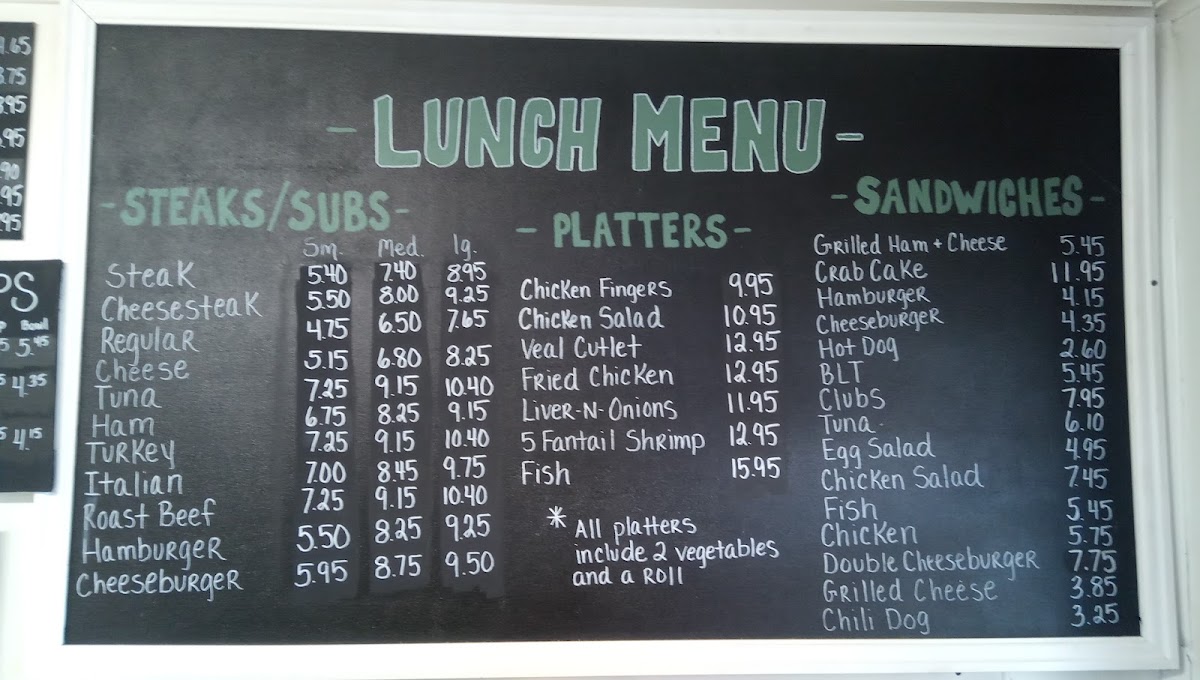 .65
.75
.95
.95
.90
.95
.95
PS
Bowl
5.45
4.35
4.15
- LUNCH MENU -
- STEAKS/SUBS -
Sm. Med. lg.
Steak 5.40 7.40 8.95
Cheesesteak 5.50 8.00 9.25
Regular 4.75 6.50 7.65
Cheese 5.15 6.80 8.25
Tuna 7.25 9.15 10.40
Ham 6.75 8.25 9.15
Turkey 7.25 9.15 10.40
Italian 7.00 8.45 9.75
Roast Beef 7.25 9.15 10.40
Hamburger 5.50 8.25 9.25
Cheeseburger 5.95 8.75 9.50
- PLATTERS -
Chicken Fingers 9.95
Chicken Salad 10.95
Veal Cutlet 12.95
Fried Chicken 12.95
Liver-N-Onions 11.95
5 Fantail Shrimp 12.95
Fish 15.95
* All platters
include 2 vegetables
and a Roll
- SANDWICHES -
Grilled Ham + Cheese 5.45
Crab Cake 11.95
Hamburger 4.15
Cheeseburger 4.35
Hot Dog 2.60
BLT 5.45
Clubs 7.95
Tuna 6.10
Egg Salad 4.95
Chicken Salad 7.45
Fish 5.45
Chicken 5.75
Double Cheeseburger 7.75
Grilled Cheese 3.85
Chili Dog 3.25